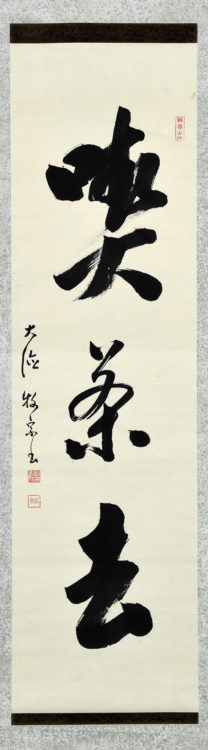 喫茶去
大徳 牧宗